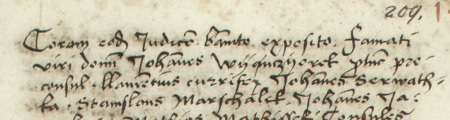 209.
Coram eodem Judicio bannito exposito. Famati
viri domini Johannes ptunc pro¬
consul. Laurentius currifex Johannes Serwath¬
ka. Stanislaus Marschalek. Johannes Ja¬
Mathias Consules